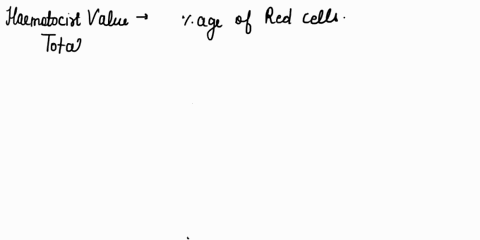 Haematocist Value → %age of Red cells.
Total